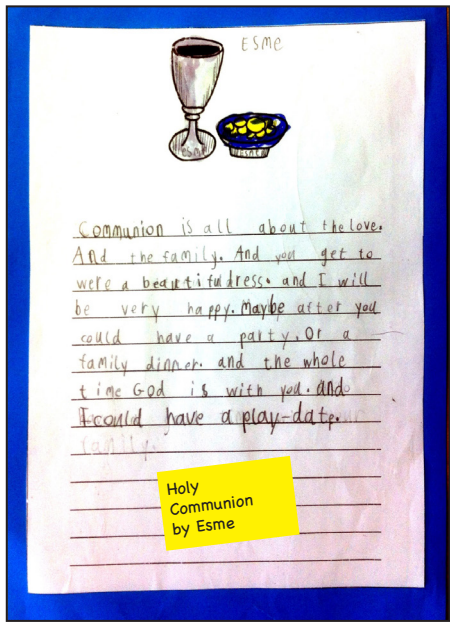 ESME
esme
ESME
Communion is all about the love.
And the family. And you get to
were a beautiful dress. and I will
be very happy. Maybe after you
could have a party. Or a
family dinner. and the whole
time God is with you. and
I could have a play-date.
family.
Holy
Communion
by Esme